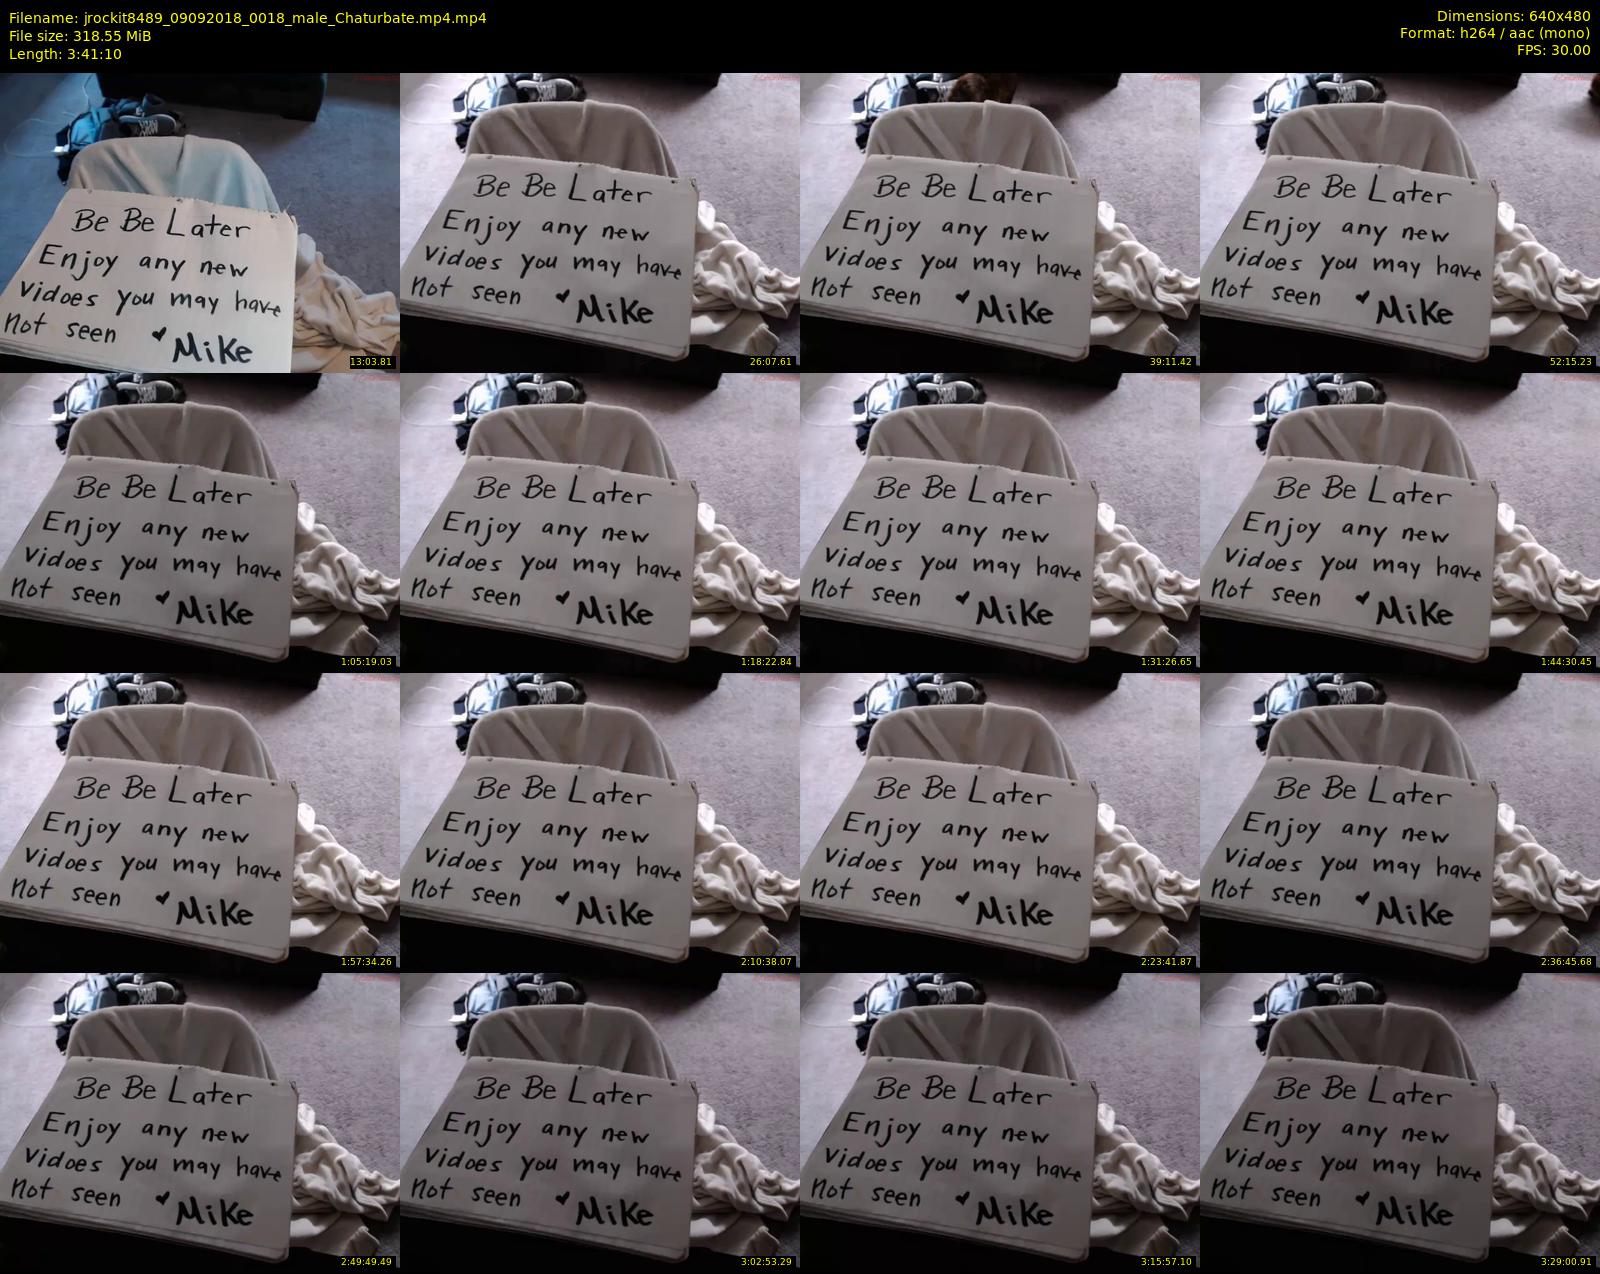 Filename: jrockit8489_09092018_0018_male_Chaturbate.mp4.mp4
File size: 318.55 MiB
Length: 3:41:10
Dimensions: 640x480
Format: h264 / aac (mono)
FPS: 30.00
Be Be Later
Enjoy any new
vidoes you may have
not seen ♥ Mike
13:03.81
Be Be Later
Enjoy any new
vidoes you may have
not seen ♥ Mike
26:07.61
Be Be Later
Enjoy any new
vidoes you may have
not seen ♥ Mike
39:11.42
Be Be Later
Enjoy any new
vidoes you may have
not seen ♥ Mike
52:15.23
Be Be Later
Enjoy any new
vidoes you may have
not seen ♥ Mike
1:05:19.03
Be Be Later
Enjoy any new
vidoes you may have
not seen ♥ Mike
1:18:22.84
Be Be Later
Enjoy any new
vidoes you may have
not seen ♥ Mike
1:31:26.65
Be Be Later
Enjoy any new
vidoes you may have
not seen ♥ Mike
1:44:30.45
Be Be Later
Enjoy any new
vidoes you may have
not seen ♥ Mike
1:57:34.26
Be Be Later
Enjoy any new
vidoes you may have
not seen ♥ Mike
2:10:38.07
Be Be Later
Enjoy any new
vidoes you may have
not seen ♥ Mike
2:23:41.87
Be Be Later
Enjoy any new
vidoes you may have
not seen ♥ Mike
2:36:45.68
Be Be Later
Enjoy any new
vidoes you may have
not seen ♥ Mike
2:49:49.49
Be Be Later
Enjoy any new
vidoes you may have
not seen ♥ Mike
3:02:53.29
Be Be Later
Enjoy any new
vidoes you may have
not seen ♥ Mike
3:15:57.10
Be Be Later
Enjoy any new
vidoes you may have
not seen ♥ Mike
3:29:00.91